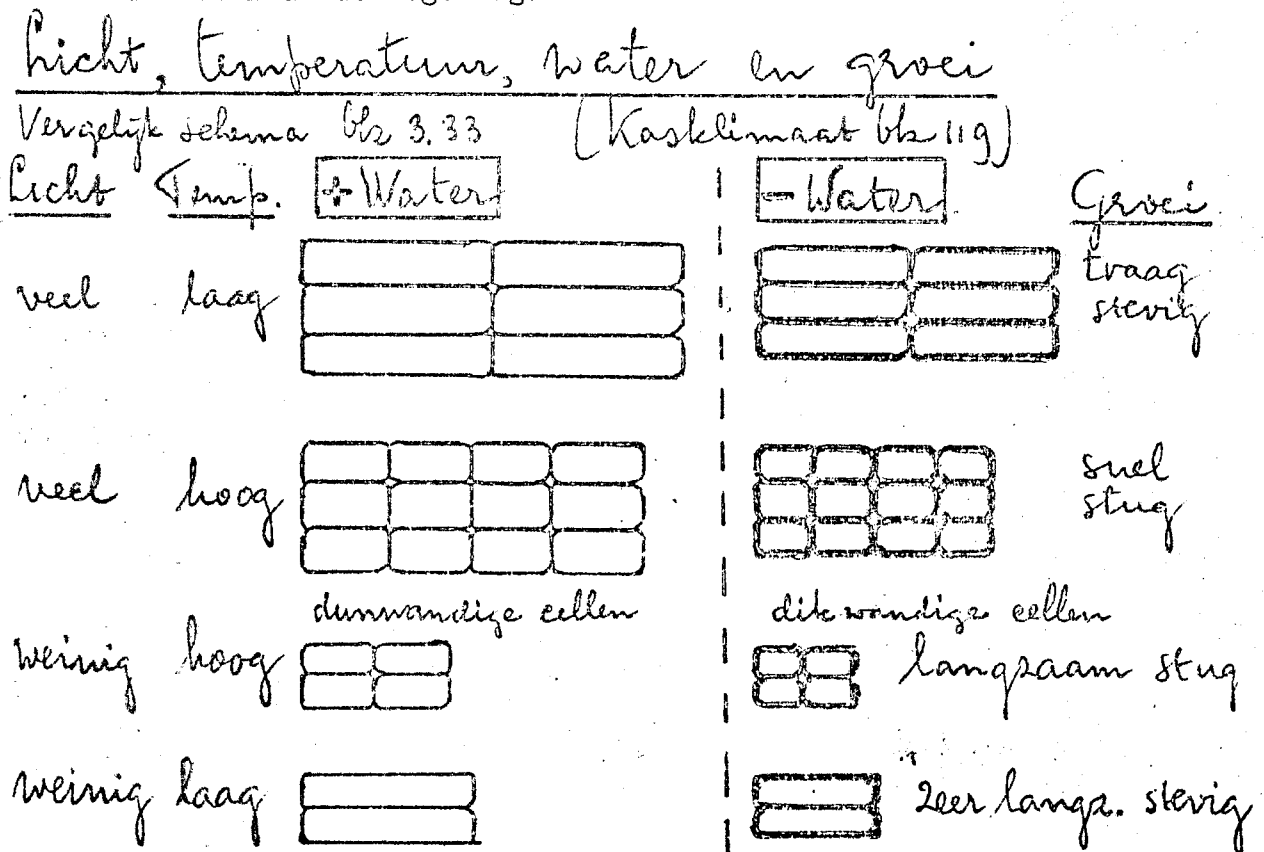 Licht, temperatuur, water en groei
Vergelijk schema blz 3.33 (Kasklimaat blz 119)
Licht Temp. + Water - Water Groei
veel laag traag
stevig
veel hoog snel
stug
dunwandige cellen dikwandige cellen
weinig hoog langzaam stug
weinig laag zeer langz. stevig